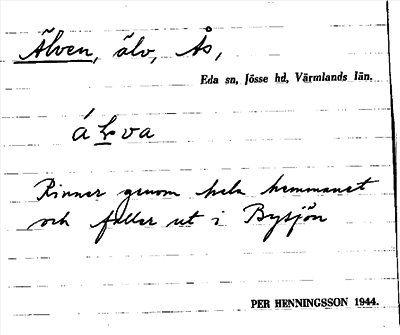 Älven, älv, Ås,
Eda sn, Jösse hd, Värmlands län.
á Ł va
Rinner genom hela hemmanet
och faller ut i Bysjön
PER HENNINGSSON 1944.